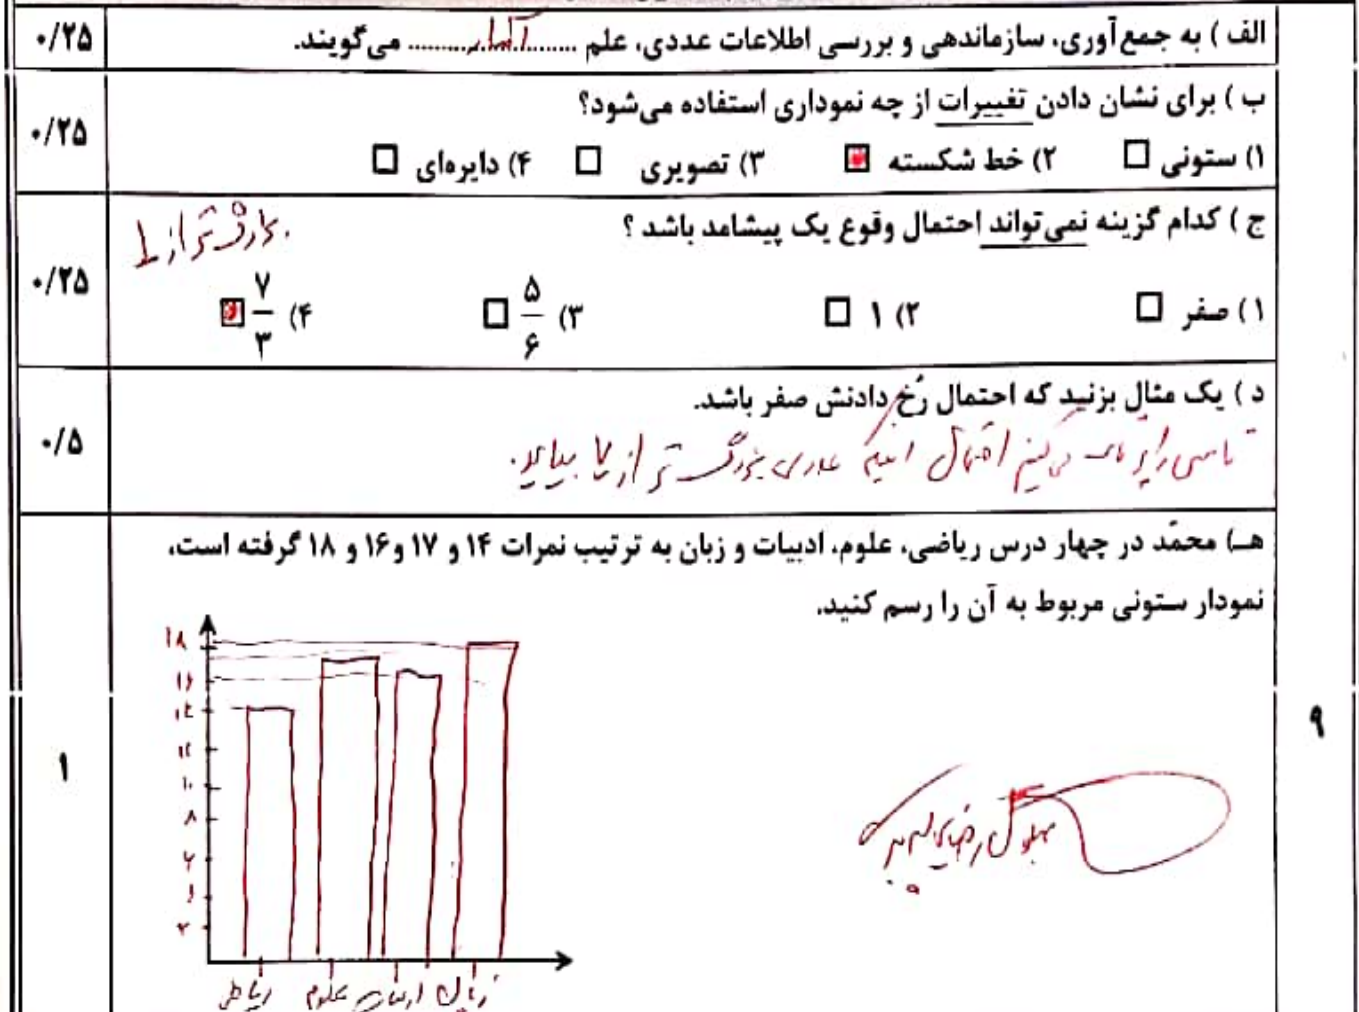 الف ) به جمع‌آوری، سازماندهی و بررسی اطلاعات عددی، علم ........آمار........ می‌گویند.
۰/۲۵
ب ) برای نشان دادن تغییرات از چه نموداری استفاده می‌شود؟
۱) ستونی ۲) خط شکسته ۳) تصویری ۴) دایره‌ای
۰/۲۵
ج ) کدام گزینه نمی‌تواند احتمال وقوع یک پیشامد باشد ؟
بزرگ تر از 1
۱ ) صفر ۲) ۱ ۳) ۵/۶ ۴) ۷/۳
۰/۲۵
د ) یک مثال بزنید که احتمال رُخ دادنش صفر باشد.
تاسی را پرتاب می‌کنیم احتمال اینکه عددی بزرگ تر از ۷ بیاید.
۰/۵
هـ) محمّد در چهار درس ریاضی، علوم، ادبیات و زبان به ترتیب نمرات ۱۴ و ۱۷ و۱۶ و ۱۸ گرفته است،
نمودار ستونی مربوط به آن را رسم کنید.
۱۸
۱۶
۱۴
۱۲
۱۰
۸
۶
۴
۲
ریاضی علوم ادبیات زبان
۱
۹